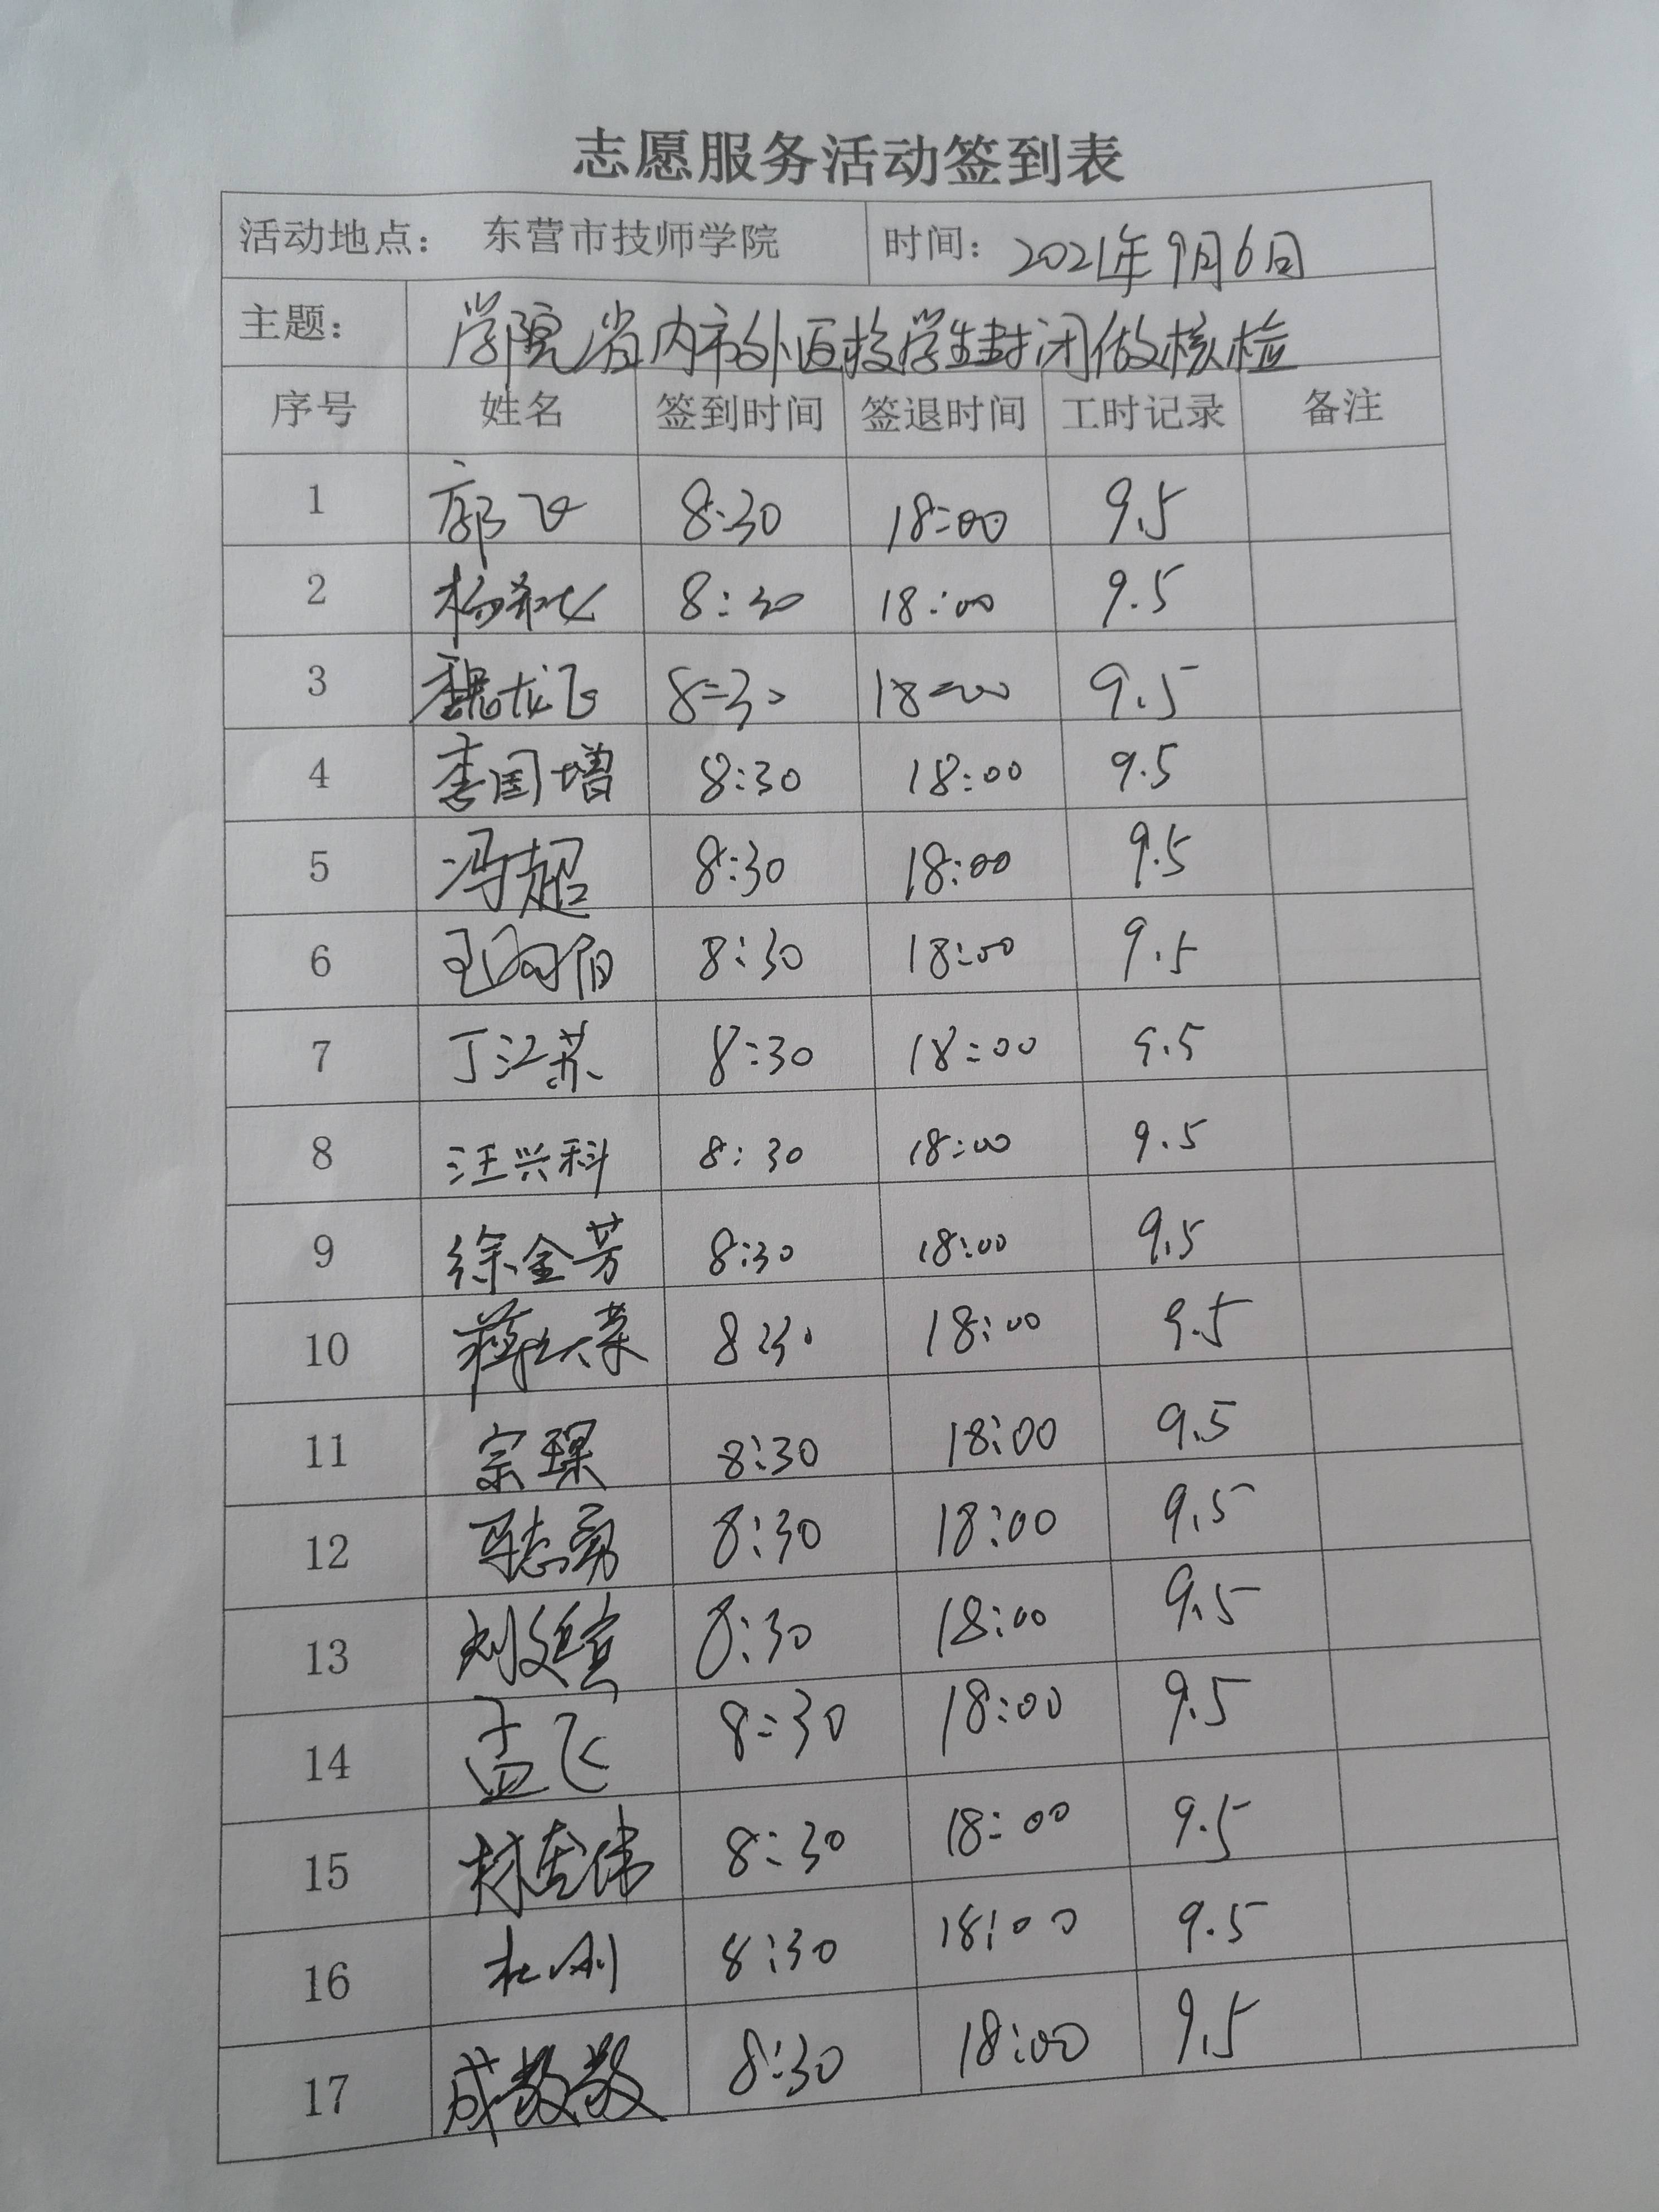 志愿服务活动签到表
活动地点： 东营市技师学院 时间： 2021年9月6日
主题： 学院省内市外返校学生封闭做核检
序号 姓名 签到时间 签退时间 工时记录 备注
1 郭飞 8:30 18:00 9.5
2 杨 8:30 18:00 9.5
3 魏龙飞 8:30 18:00 9.5
4 李国增 8:30 18:00 9.5
5 冯超 8:30 18:00 9.5
6 王 8:30 18:00 9.5
7 丁江苏 8:30 18:00 9.5
8 汪兴科 8:30 18:00 9.5
9 徐金芳 8:30 18:00 9.5
10 蒋 荣 8:30 18:00 9.5
11 宗璞 8:30 18:00 9.5
12 马志勇 8:30 18:00 9.5
13 刘 8:30 18:00 9.5
14 孟飞 8:30 18:00 9.5
15 林 伟 8:30 18:00 9.5
16 杜刚 8:30 18:00 9.5
17 成敬敬 8:30 18:00 9.5